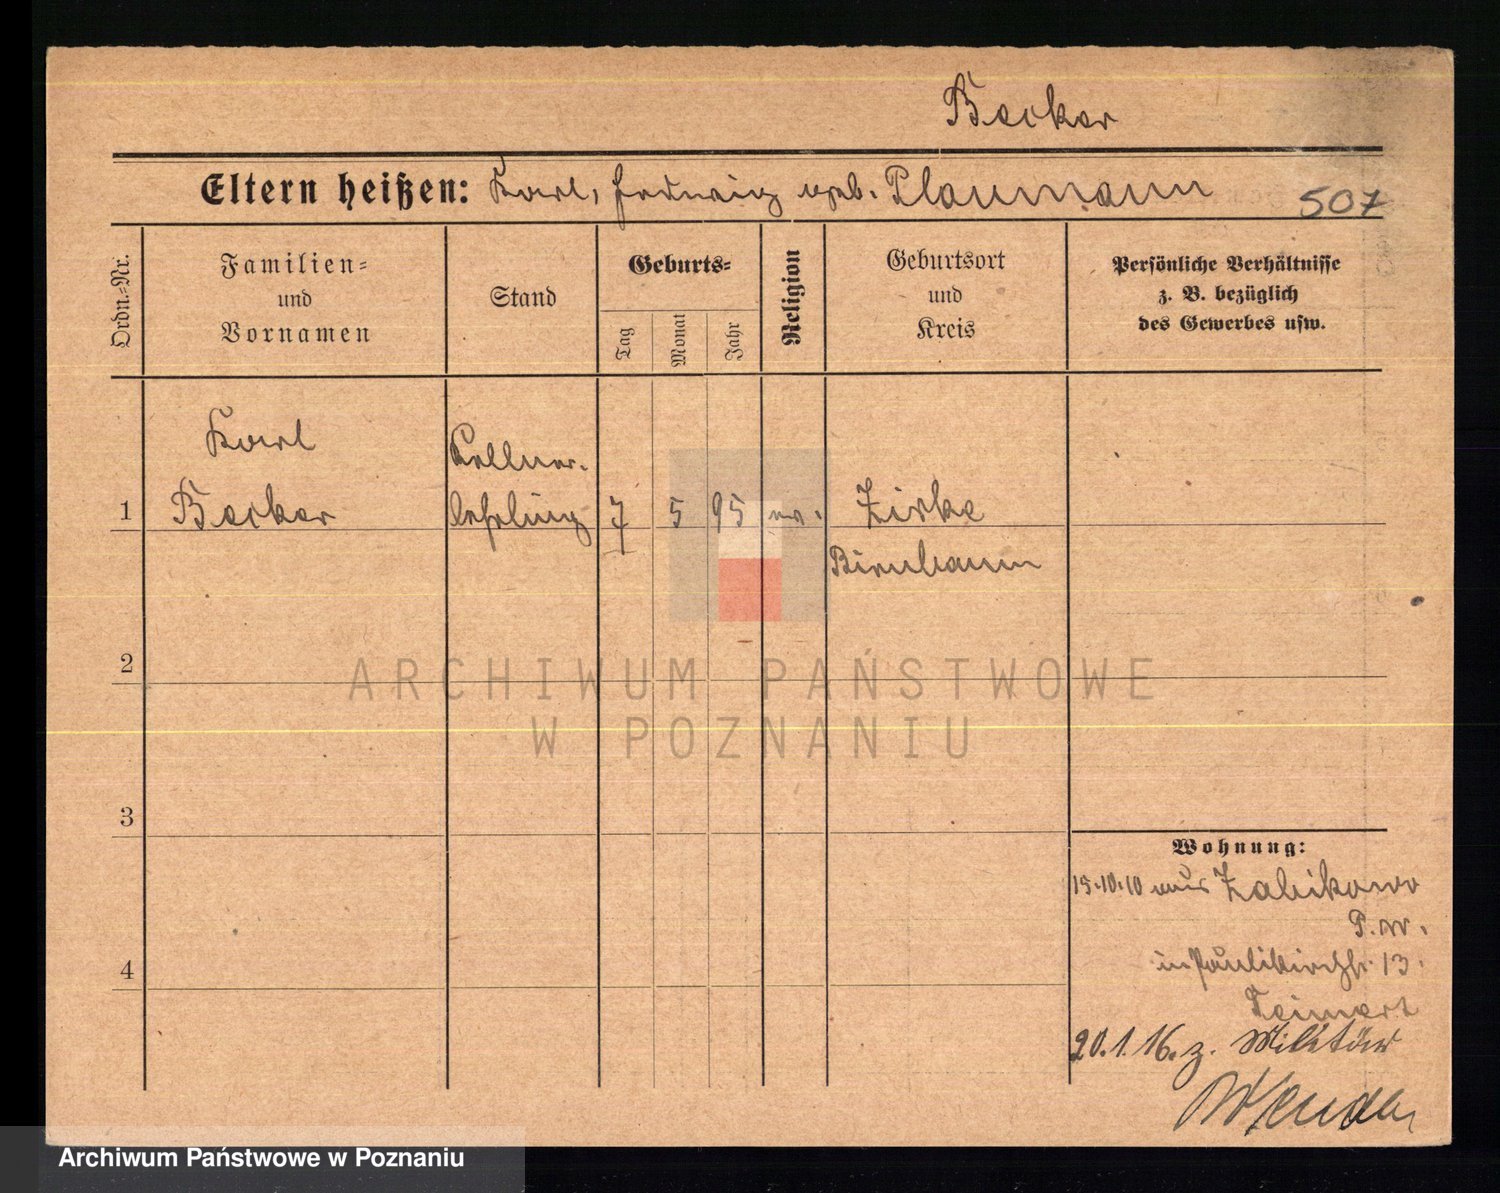 Becker
Eltern heißen: Karl, Hedwig geb. Plaumann
507
Ordn.-Nr.
Familien-
und
Vornamen
Stand
Geburts-
Tag
Monat
Jahr
Religion
Geburtsort
und
Kreis
Persönliche Verhältnisse
z. B. bezüglich
des Gewerbes usw.
Karl
Kellner-
1 Becker lehrling 7 5 95 ev. Zirke
Birnbaum
2
ARCHIWUM PAŃSTWOWE
W POZNANIU
3
Wohnung:
15.10.10 aus Zabikowo
P.W.
in Paulikirchstr. 13.
4
20.1.16. z. Militär
Archiwum Państwowe w Poznaniu